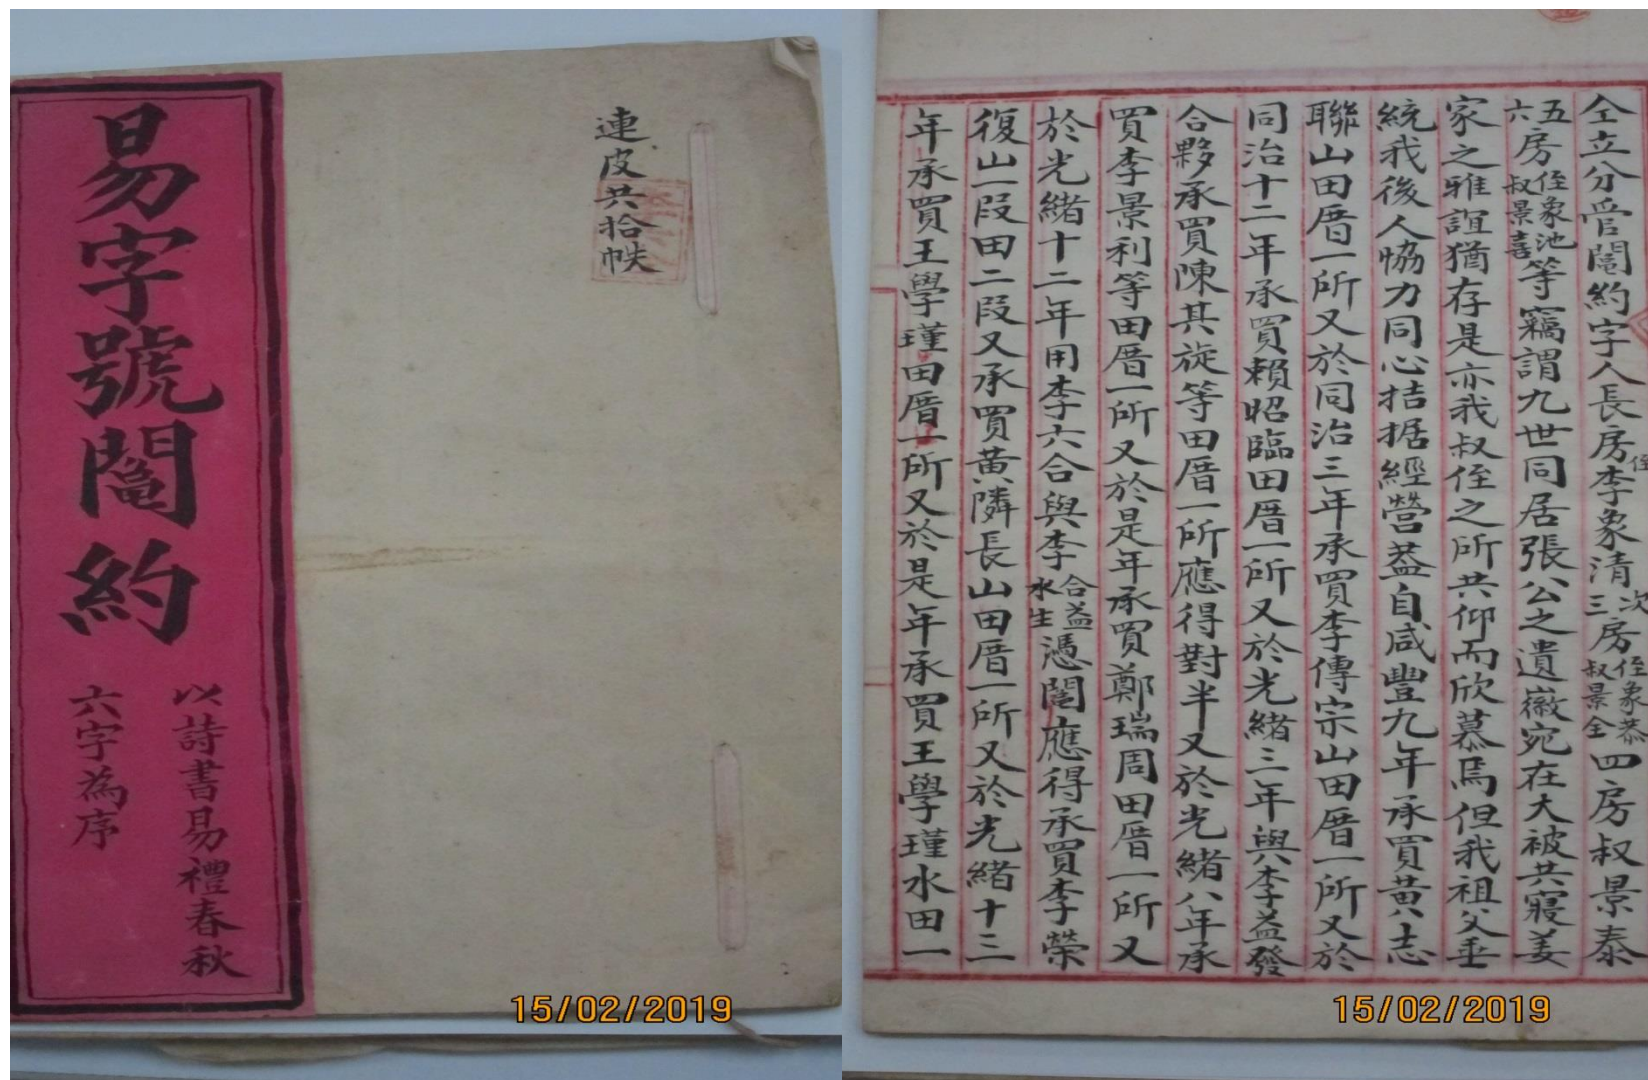 易字號鬮約
以詩書易禮春秋
六字為序
連皮共拾帙
15/02/2019
仝立分管鬮約字人長房侄李象清次三房侄象恭叔景全四房叔景泰
五六房侄象池叔景喜等竊謂九世同居張公之遺徽宛在大被共寢姜
家之雅誼猶存是亦我叔侄之所共仰而欣慕焉但我祖父垂
統我後人恊力同心拮据經營益自咸豐九年承買黃八志
聯山田厝一所又於同治三年承買李傳宗山田厝一所又於
同治十二年承買賴昭臨田厝一所又於光緒三年與李益發
合夥承買陳其旋等田厝一所應得對半又於光緒八年承
買李景利等田厝一所又於是年承買鄭瑞周田厝一所又
於光緒十二年用李六合與李合益水生憑鬮應得承買李榮
復山一段田二段又承買黃隣長山田厝一所又於光緒十三
年承買王學瑾田厝一所又於是年承買王學瑾水田一
15/02/2019